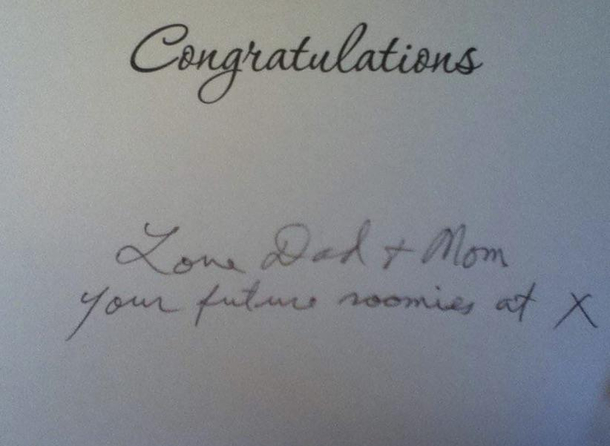 Congratulations
Love Dad + Mom
your future roomies at X